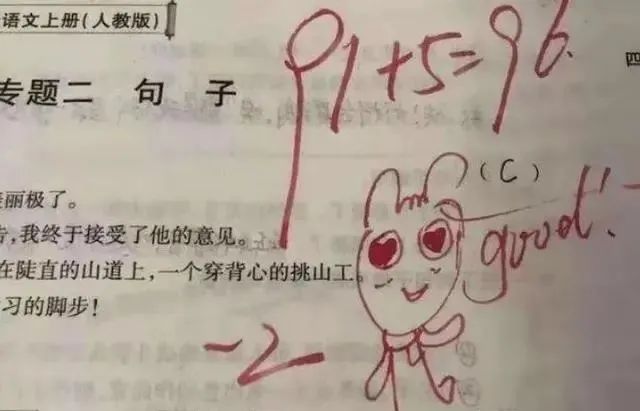 语文上册(人教版)
91+5=96.
四
专题二 句子
(C)
丽极了。
good!
,我终于接受了他的意见。
在陡直的山道上,一个穿背心的挑山工。
习的脚步!
-2